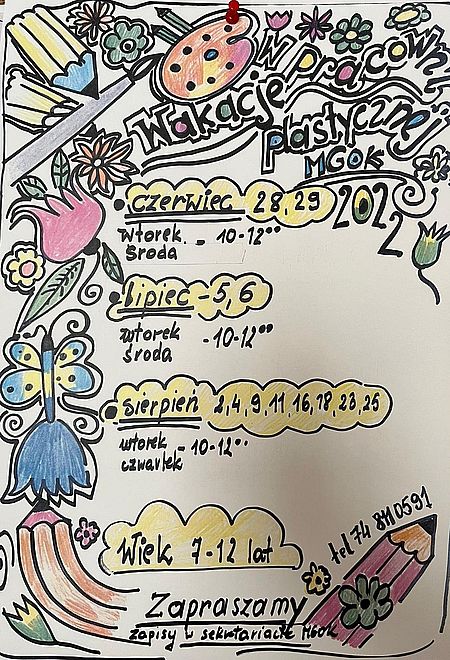 Wakacje w pracowni
plastycznej
MGOK
2022
czerwiec 28, 29
wtorek - 10-12⁰⁰
środa
lipiec - 5, 6
wtorek - 10-12⁰⁰
środa
sierpień 2,4,9,11,16,18,23,25
wtorek - 10-12⁰⁰
czwartek
Wiek 7-12 lat
tel 74 8110591
Zapraszamy
zapisy w sekretariacie MGOK